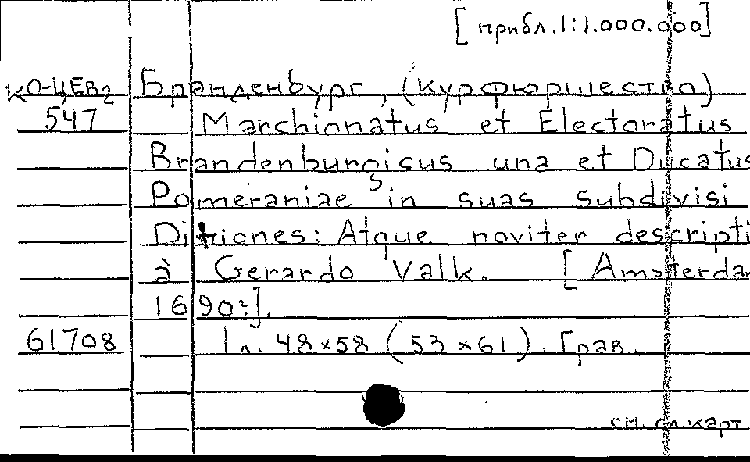 [прибл. 1:1.000.000]
КО-ЦЕВ2 Бранденбург, (курфюршество)
547 Marchionatus et Electoratus
Brandenburgicus una et Ducatus
Pomeraniae in suas subdivisi
Ditiones: Atque noviter descripti
à Gerardo Valk. [Amsterda
1690?].
61708 1 л. 48x58 (53x61). Грав.
см. сл. карт